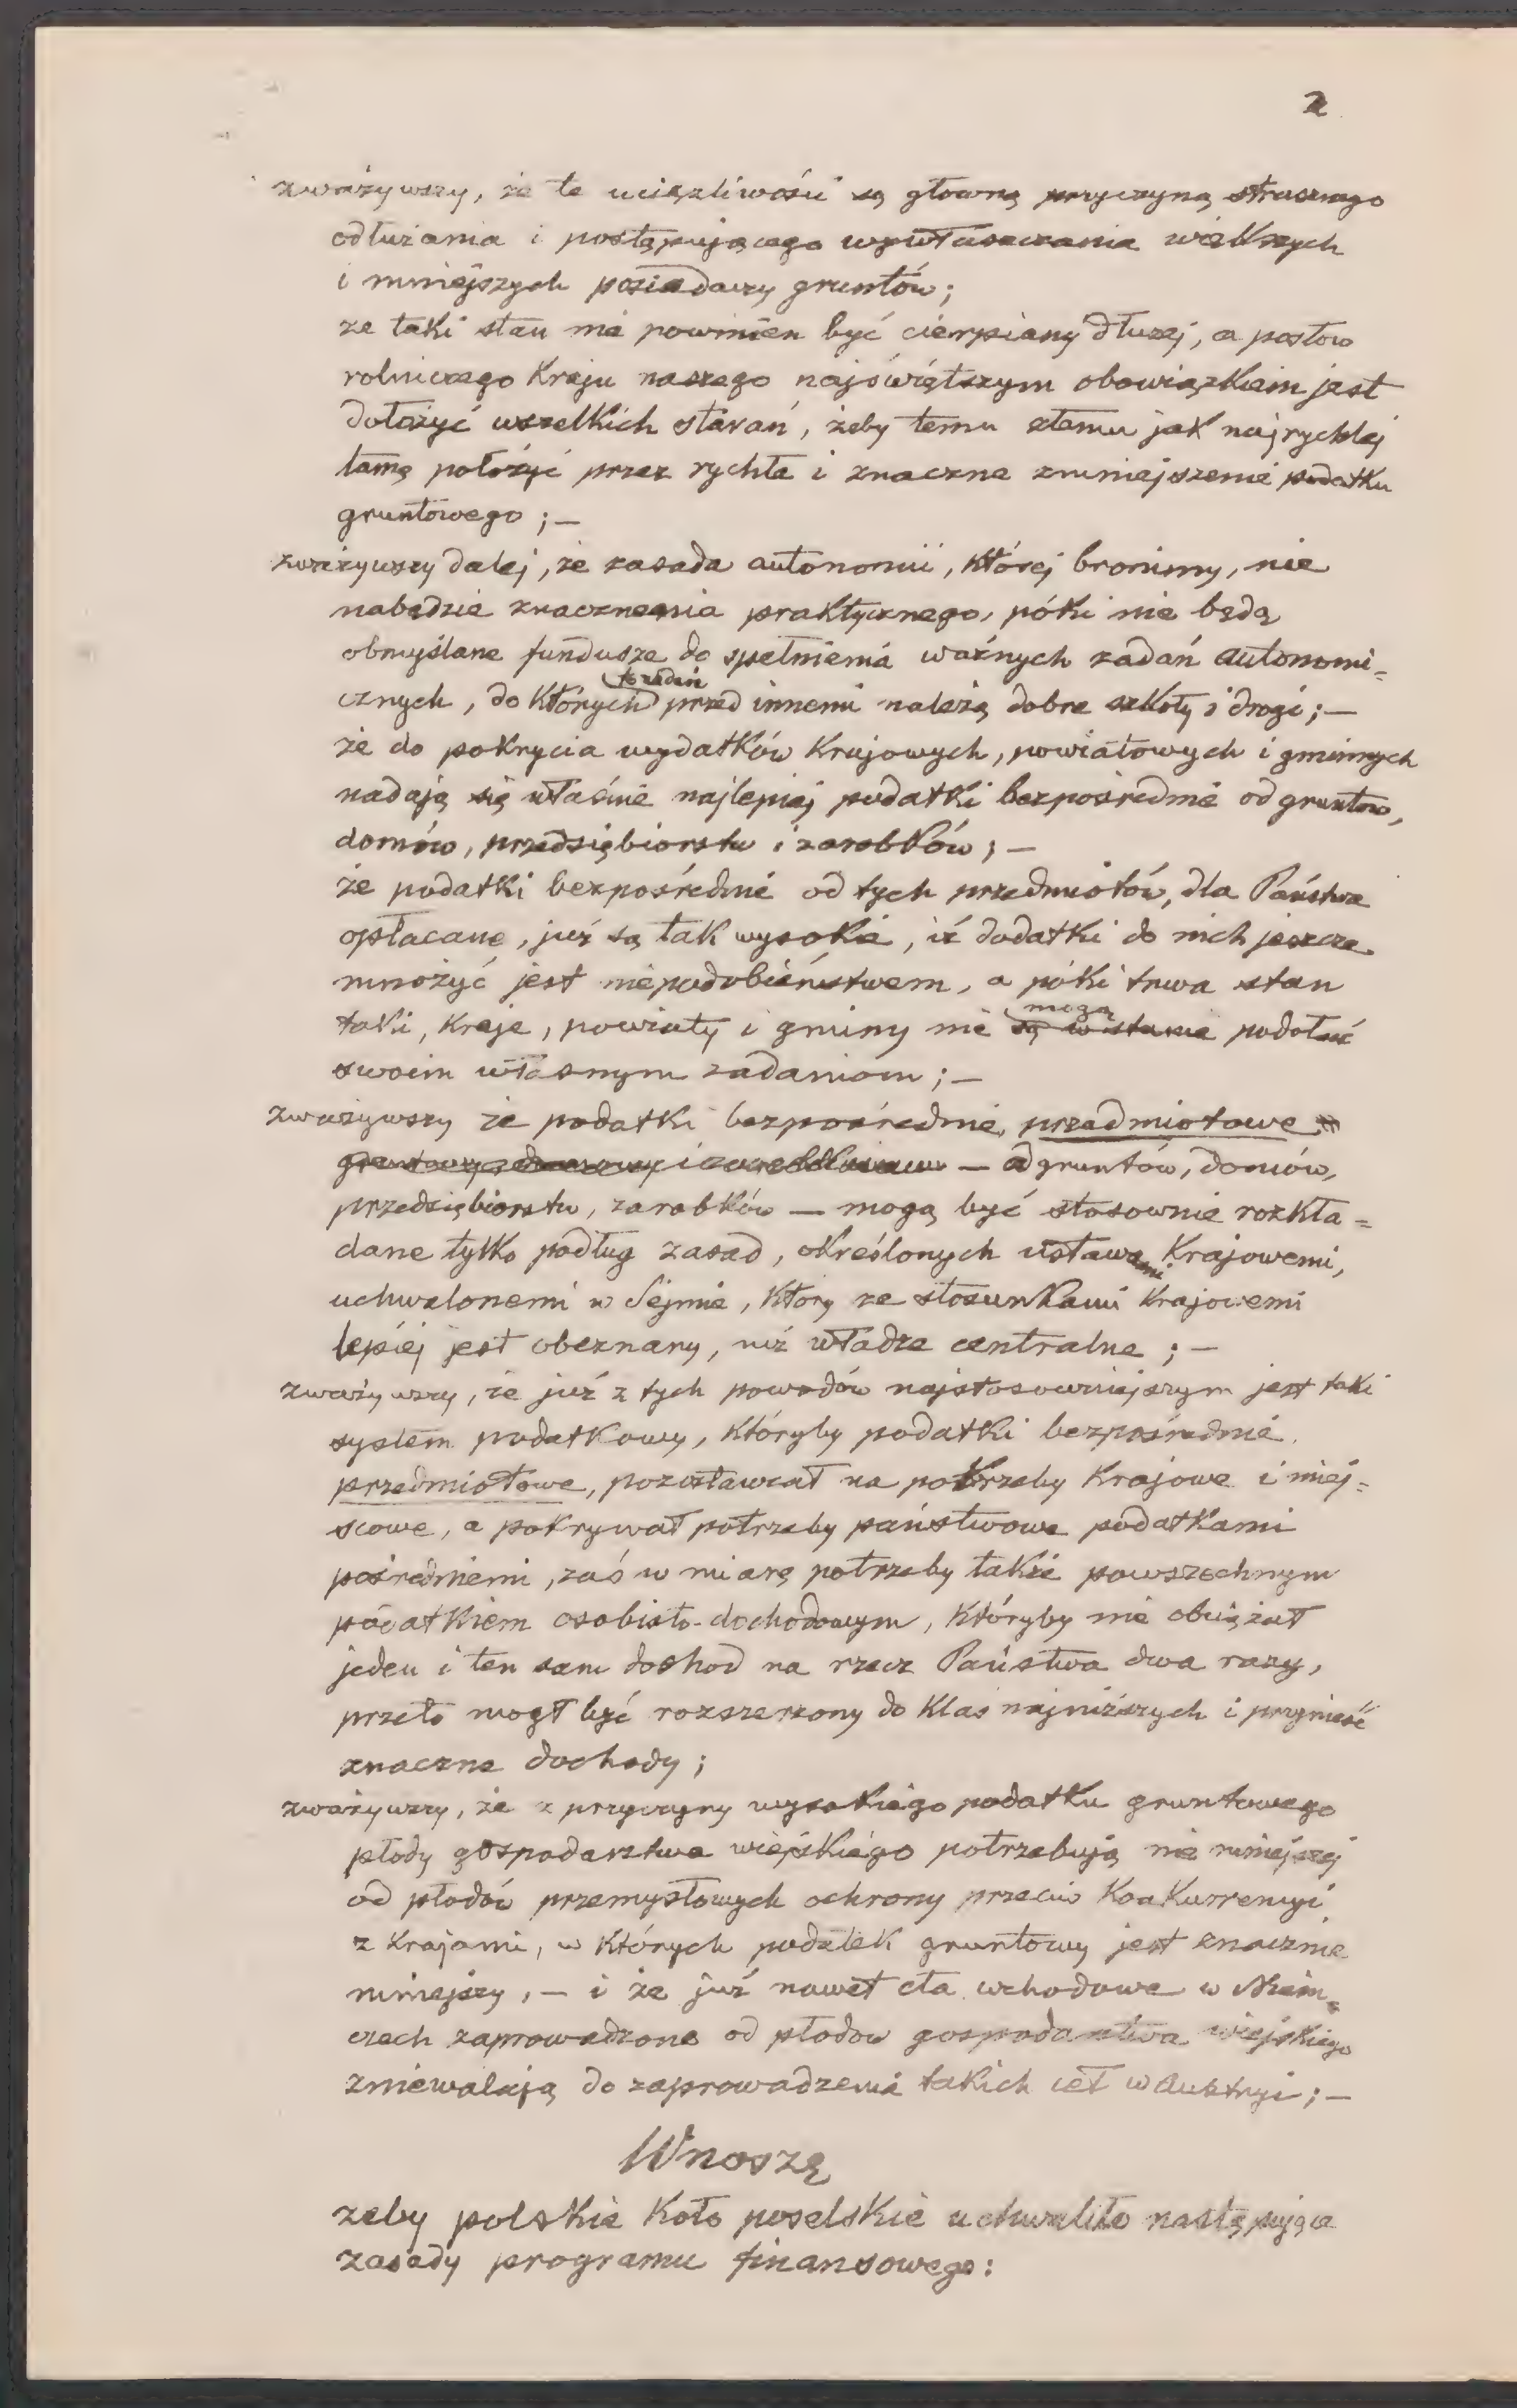 2
zważywszy, że te uciążliwości są główną przyczyną strasznego
odłużania i postępującego wywłaszczania większych
i mniejszych posiadaczy gruntów;
że taki stan nie powinien być cierpiany dłużej, a posłów
rolniczego Kraju naszego najświętszym obowiązkiem jest
dołożyć wszelkich starań, żeby temu złemu jak najrychlej
tamę położyć przez rychłe i znaczne zmniejszenie podatku
gruntowego; —
zważywszy dalej, że zasada autonomii, której bronimy, nie
nabędzie znaczenia praktycznego, póki nie będą
obmyślane fundusze do spełnienia ważnych zadań autonomi=
cznych, do których przed innemi należą dobre szkoły i drogi; —
że do pokrycia wydatków Krajowych, powiatowych i gminnych
nadają się właśnie najlepiej podatki bezpośrednie od gruntów,
domów, przedsiębiorstw i zarobków; —
że podatki bezpośrednie od tych przedmiotów, dla Państwa
opłacane, już są tak wysokie, iż dodatki do nich jeszcze
mnożyć jest niepodobieństwem, a póki trwa stan
taki, Kraje, powiaty i gminy nie są w stanie mogą podołać
swoim własnym zadaniom; —
zważywszy że podatki bezpośrednie, przedmiotowe
— od gruntów, domów,
przedsiębiorstw, zarobków — mogą być stosownie rozkła=
dane tylko podług zasad, określonych ustawami Krajowemi,
uchwalonemi w Sejmie, który ze stosunkami Krajowemi
lepiej jest obeznany, niż władze centralne; —
zważywszy, że już z tych powodów najstosowniejszym jest taki
system podatkowy, któryby podatki bezpośrednie
przedmiotowe, pozostawiał na potrzeby Krajowe i miej=
scowe, a pokrywał potrzeby państwowe podatkami
pośredniemi, zaś w miarę potrzeby także powszechnym
podatkiem osobisto-dochodowym, któryby nie obciążał
jeden i ten sam dochód na rzecz Państwa dwa razy,
przeto mógł być rozszerzony do klas najniższych i przynieść
znaczne dochody;
zważywszy, że z przyczyny wysokiego podatku gruntowego
płody gospodarstwa wiejskiego potrzebują nie mniejszej
od płodów przemysłowych ochrony przeciw Konkurrencyi
z Krajami, w których podatek gruntowy jest znacznie
mniejszy, — i że już nawet cła wchodowe w Niem=
czech zaprowadzone od płodów gospodarstwa wiejskiego
zniewalają do zaprowadzenia takich ceł w Austryi; —
Wnoszę
żeby polskie Koło poselskie uchwaliło następujące
zasady programu finansowego: